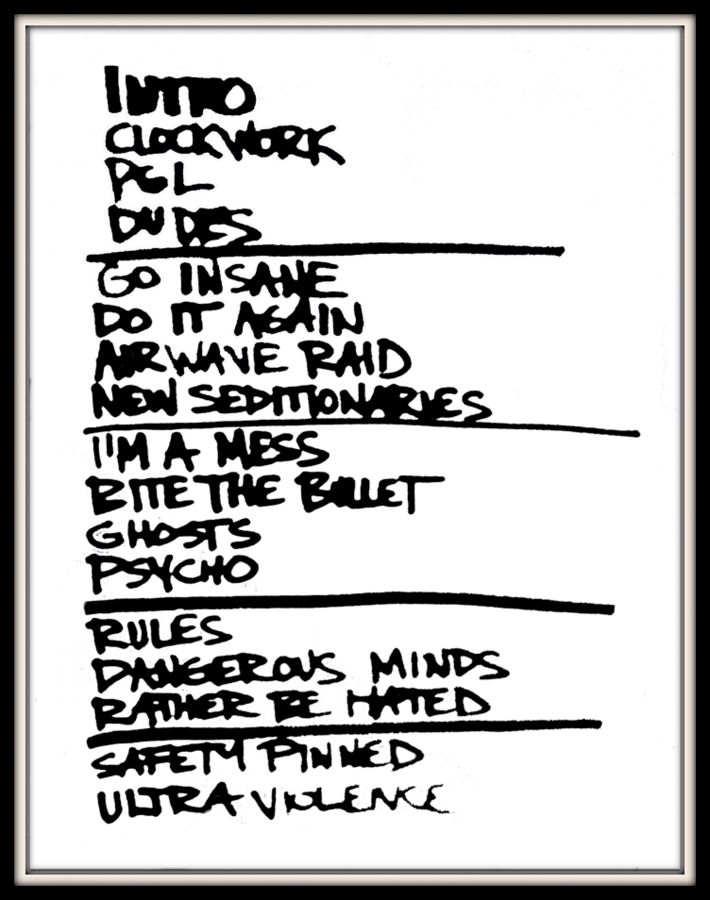 INTRO
CLOCKWORK
PGL
DUDES
GO INSANE
DO IT AGAIN
AIRWAVE RAID
NEW SEDITIONARIES
I'M A MESS
BITE THE BULLET
GHOSTS
PSYCHO
RULES
DANGEROUS MINDS
RATHER BE HATED
SAFETY PINNED
ULTRA VIOLENCE